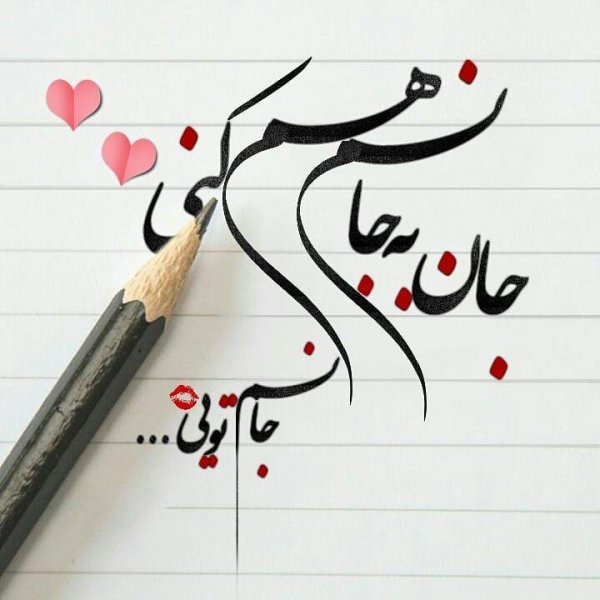 جان به جانم هم کنی
جانم تویی...